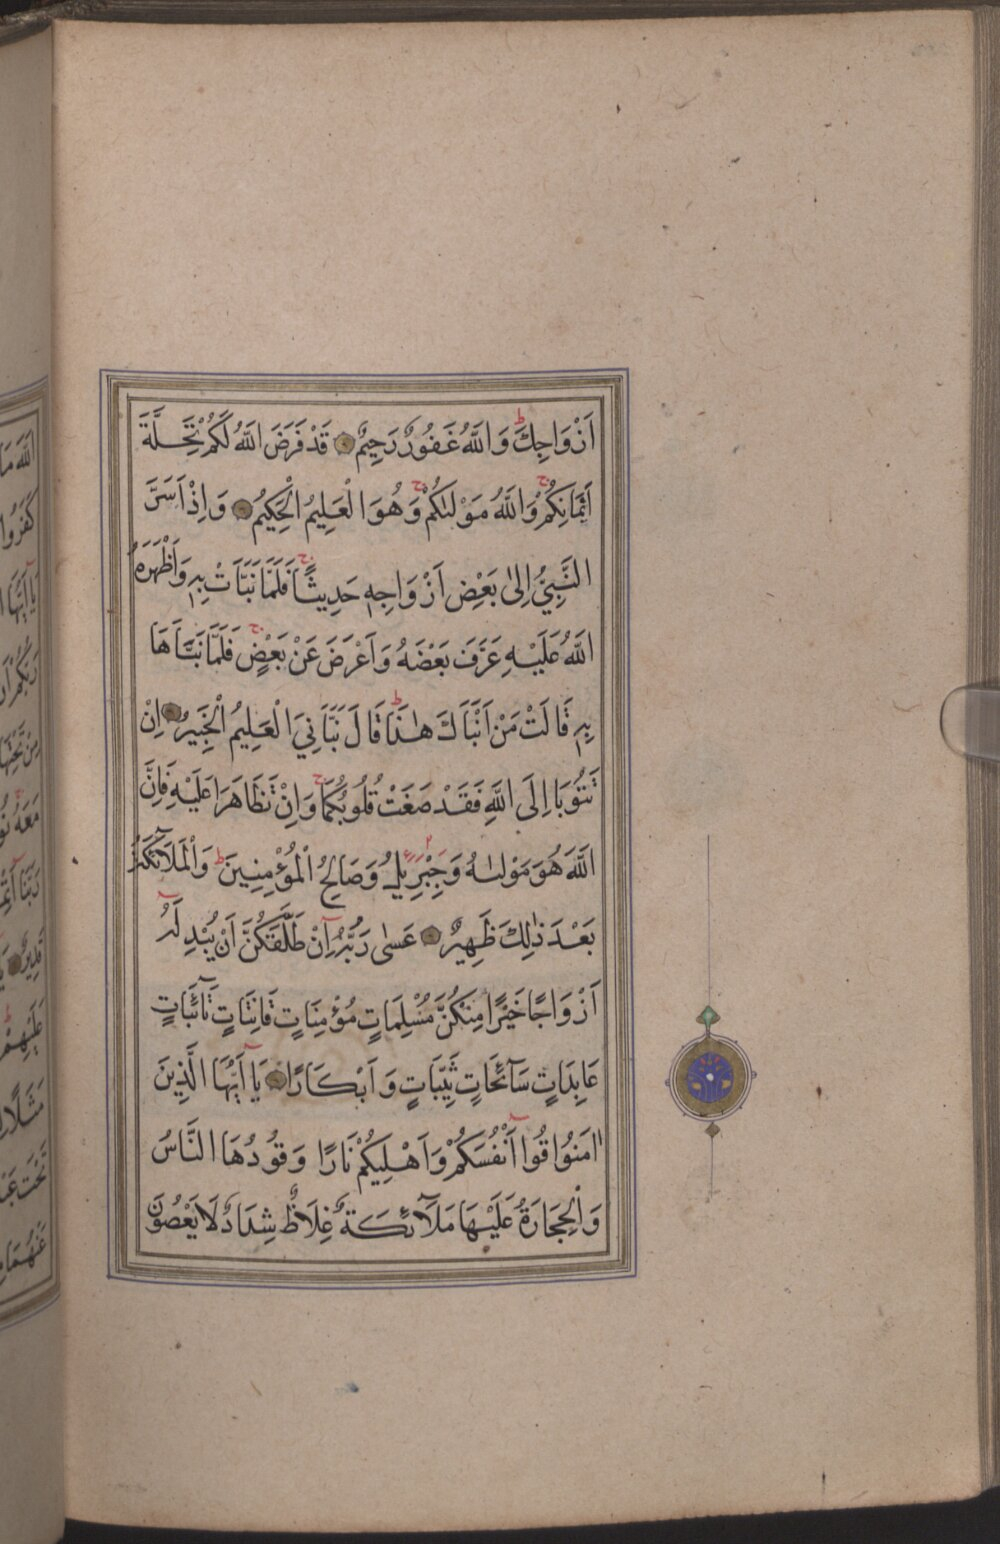 اَزْوَاجِكَ وَاللّٰهُ غَفُورٌ رَحِيمٌ قَدْ فَرَضَ اللّٰهُ لَكُمْ تَحِلَّةَ
اَيْمَانِكُمْ وَاللّٰهُ مَوْلٰيكُمْ وَهُوَ الْعَلِيمُ الْحَكِيمُ وَاِذْ اَسَرَّ
النَّبِيُّ اِلٰى بَعْضِ اَزْوَاجِهٖ حَدِيثًا فَلَمَّا نَبَّاَتْ بِهٖ وَاَظْهَرَهُ
اللّٰهُ عَلَيْهِ عَرَّفَ بَعْضَهُ وَاَعْرَضَ عَنْ بَعْضٍ فَلَمَّا نَبَّاَهَا
بِهٖ قَالَتْ مَنْ اَنْبَاَكَ هٰذَا قَالَ نَبَّاَنِيَ الْعَلِيمُ الْخَبِيرُ اِنْ
تَتُوبَا اِلَى اللّٰهِ فَقَدْ صَغَتْ قُلُوبُكُمَا وَاِنْ تَظَاهَرَا عَلَيْهِ فَاِنَّ
اللّٰهَ هُوَ مَوْلٰيهُ وَجِبْرِيلُ وَصَالِحُ الْمُؤْمِنِينَ وَالْمَلَآئِكَةُ
بَعْدَ ذٰلِكَ ظَهِيرٌ عَسٰى رَبُّهُ اِنْ طَلَّقَكُنَّ اَنْ يُبْدِلَهُ
اَزْوَاجًا خَيْرًا مِنْكُنَّ مُسْلِمَاتٍ مُؤْمِنَاتٍ قَانِتَاتٍ تَآئِبَاتٍ
عَابِدَاتٍ سَآئِحَاتٍ ثَيِّبَاتٍ وَاَبْكَارًا يَآ اَيُّهَا الَّذِينَ
اٰمَنُوا قُوآ اَنْفُسَكُمْ وَاَهْلِيكُمْ نَارًا وَقُودُهَا النَّاسُ
وَالْحِجَارَةُ عَلَيْهَا مَلَآئِكَةٌ غِلَاظٌ شِدَادٌ لَا يَعْصُونَ